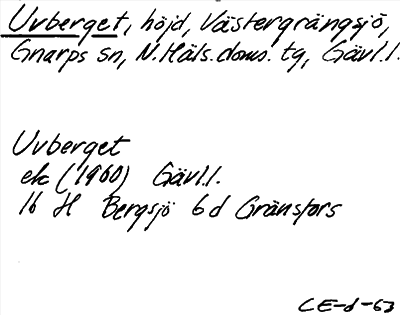 Uvberget, höjd, Västergrängsjö,
Gnarps sn, N.Häls.doms. tg, Gävl.l.
Uvberget
ek (1960) Gävl.l.
16 H Bergsjö 6 d Gränsfors
CE-d-63